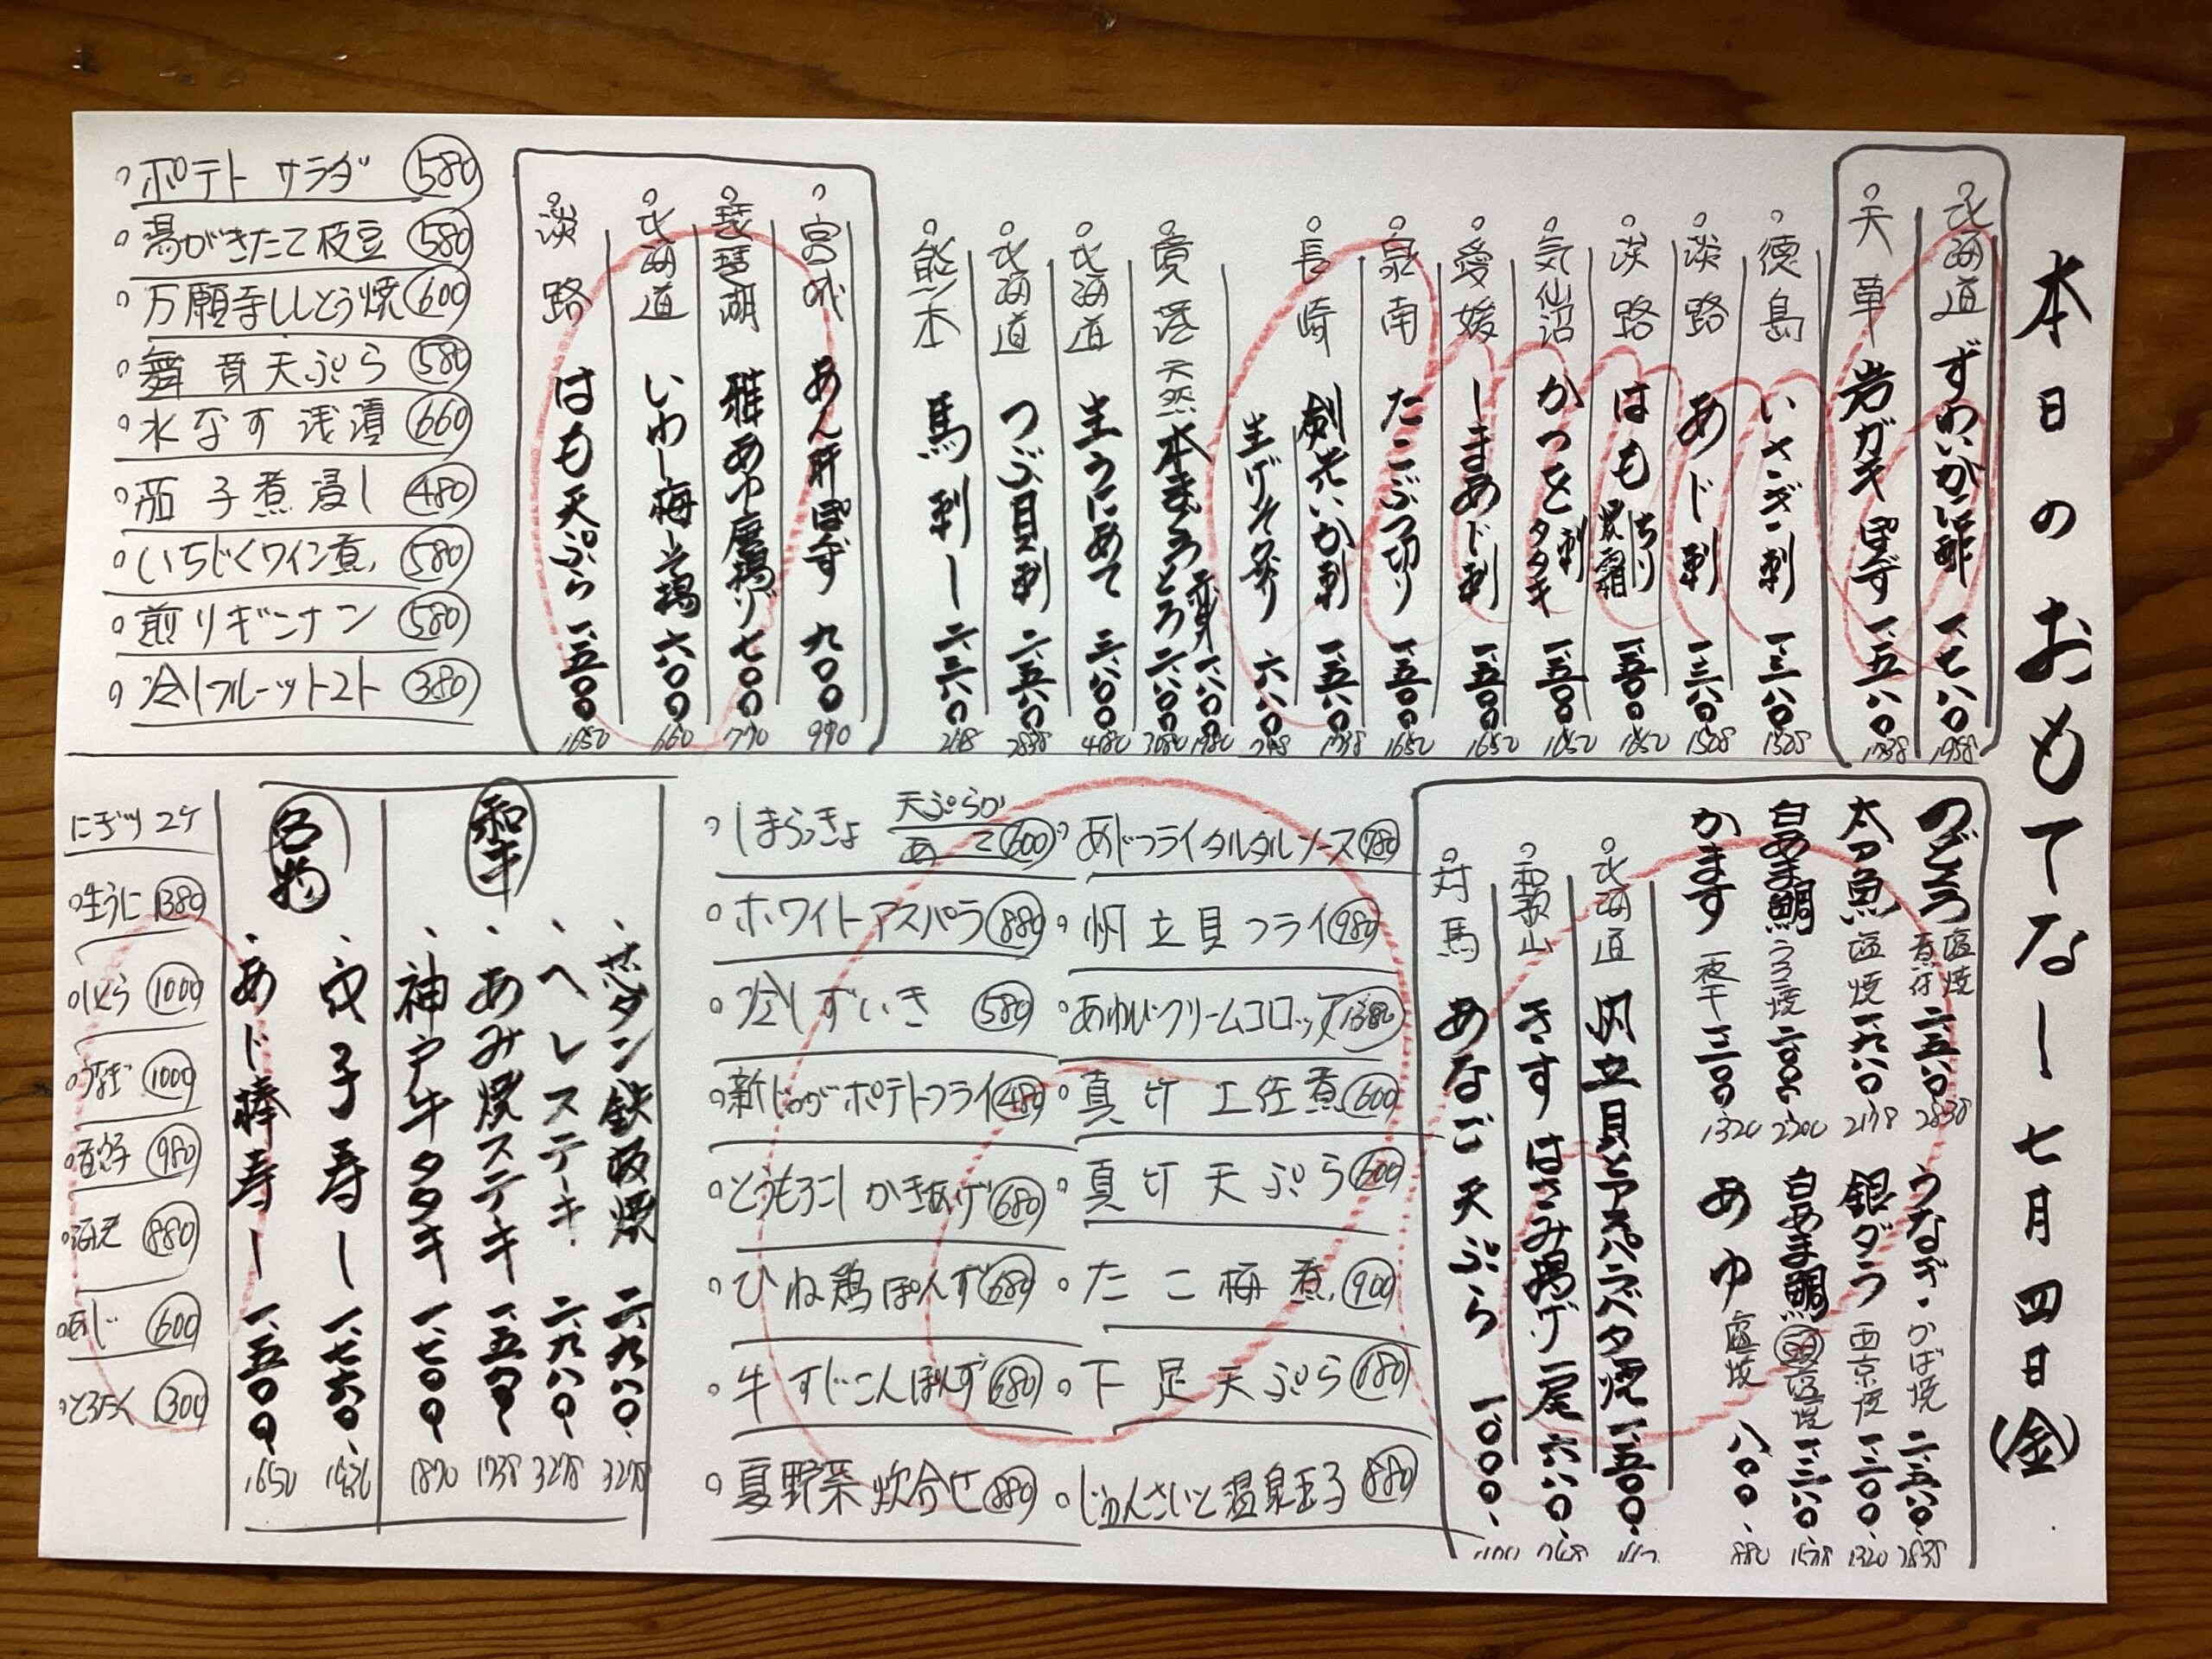 本日のおもてなし 七月四日(金)
北海道 ずわいがに酢 一、七八〇 1958
天草 岩ガキ ぽず 一、五八〇 1738
徳島 いさぎ刺 一、三八〇 1518
淡路 あじ刺 一、三八〇 1518
淡路 はも ちり 湯霜 一、五〇〇 1650
気仙沼 かつを 刺 タタキ 一、五〇〇 1650
愛媛 しまあじ刺 一、五〇〇 1650
泉南 たこぶつ切り 一、五〇〇 1650
長崎 剣先いか刺 一、五八〇 1738
生げそ炙り 六八〇 748
境港 天然本まぐろ 赤身 一、八〇〇 1980 とろ 二、八〇〇 3080
北海道 生うにあて
北海道 つぶ貝刺 二、五八〇 2838
熊本 馬刺し
宮城 あん肝ぽず 九〇〇 990
琵琶湖 稚あゆ唐揚げ 七〇〇 770
北海道 いわし梅しそ揚 六〇〇 660
淡路 はも天ぷら 一、五〇〇 1650
・ポテトサラダ 580
・湯がきたて枝豆 580
・万願寺ししとう焼 600
・舞茸天ぷら 580
・水なす浅漬 660
・茄子煮浸し 480
・いちじくワイン煮 580
・煎りギンナン 580
・冷しフルーツトマト 380
のどぐろ 塩焼 煮付 二、五八〇 2838
太刀魚 塩焼 一、九八〇 2178
白あま鯛 うろこ焼 二、〇〇〇 2200
かます 一夜干 一、二〇〇 1320
うなぎ かば焼 二、五八〇 2838
銀ダラ 西京焼 一、二〇〇 1320
白あま鯛 頭 塩焼
あゆ 塩焼 八〇〇 880
北海道 帆立貝とアスパラバター焼 一、五〇〇
和歌山 きすはさみ揚げ 一尾 六八〇 748
対馬 あなご天ぷら 一、〇〇〇 1100
・あじフライタルタルソース 780
・帆立貝フライ 980
・あわびクリームコロッケ 1380
・真竹土佐煮 600
・真竹天ぷら 600
・たこ梅煮 900
・下足天ぷら 680
・じゅんさいと温泉玉子 880
・しまらっきょ 天ぷらか あて 600
・ホワイトアスパラ 880
・冷しずいき 580
・新じゃがポテトフライ 480
・とうもろこしかきあげ 680
・ひね鶏ぽんず 680
・牛すじこんぽんず 680
・夏野菜炊合せ 880
和牛
、芯タン鉄板焼 二、九八〇 3278
、ヘレステーキ 二、九八〇 3278
、あみ焼ステーキ
、神戸牛タタキ 一、七〇〇 1870
名物
、穴子寿し 一、七六〇 1936
、あじ棒寿し 一、五〇〇 1650
にぎり 2ケ
・生うに 1380
・しとろ 1000
・うなぎ 1000
・煮穴子 980
・活だこ 880
・あじ 600
・とろたく 1300